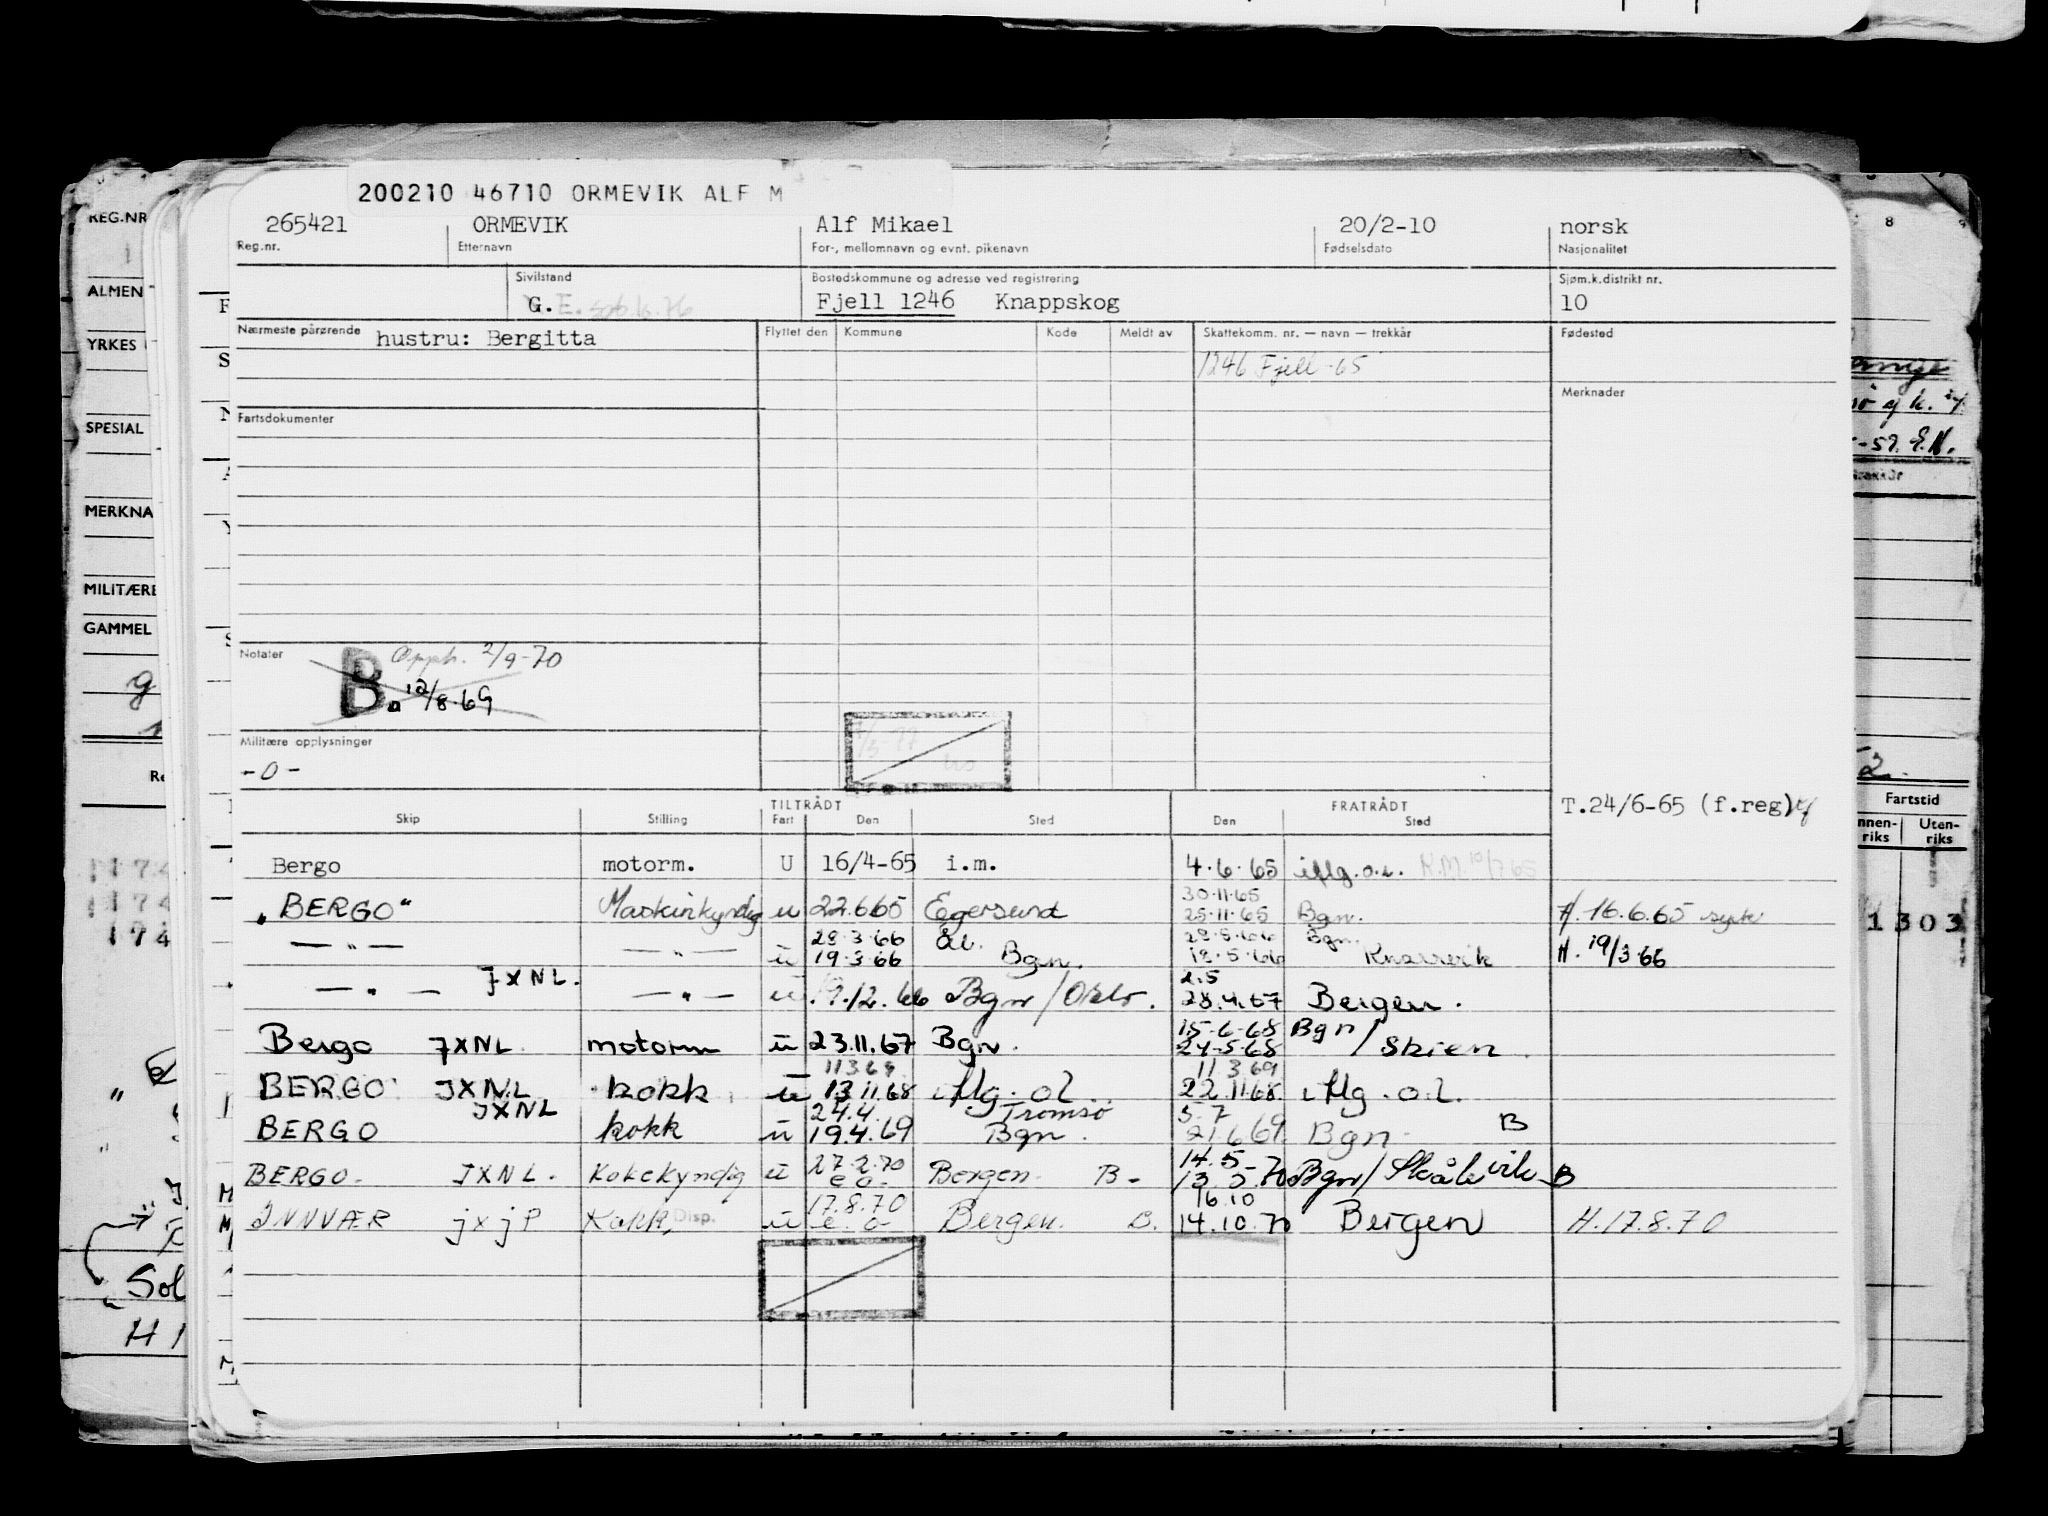 200210 46710 ORMEVIK ALF M
265421 ORMEVIK Alf Mikael 20/2-10 norsk
Reg.nr. Etternavn For-, mellomnavn og evnt. pikenavn Fødselsdato Nasjonalitet
Sivilstand Bostedskommune og adresse ved registrering Sjøm.k.distrikt nr.
G. E. Fjell 1246 Knappskog 10
Nærmeste pårørende hustru: Bergitta Flyttet den Kommune Kode Meldt av Skattekomm. nr. — navn — trekkår Fødested
1246 Fjell -65
Merknader
Fartsdokumenter
Notater
Opph. 2/9-70
B. 12/8.69
Militære opplysninger
-0-
TILTRÅDT FRATRÅDT T.24/6-65 (f.reg)
Skip Stilling Fart Den Sted Den Sted
Bergo motorm. U 16/4-65 i.m. 4.6.65 iflg.o.l.
30.11.65
"BERGO" Maskinkyndig u 22.6.65 Egersund 25.11.65 Bgn. H. 16.6.65
28.3.66 Ål. 28.5.66 Bgn.
— " — — " — u 19.3.66 Bgn. 18.5.66 Knarrevik H. 19/3.66
2.5
— " — JXNL. — " — u 9.12.66 Bgn/Oslo. 28.4.67 Bergen.
15.6.68 Bgn
Bergo JXNL motorm u 23.11.67 Bgn. 24.5.68 /Skien.
11 3 69 11 3 69
BERGO JXNL kokk u 13 11.68 iflg. o.l. 22.11.68 iflg. o.l.
JXNL 24.4. Tromsø 5.7
BERGO kokk u 19.4.69 Bgn. 21.6.69 Bgn. B
27.2.70 14.5
BERGO. JXNL. Kokekyndig u e.o. Bergen. B. 13.5.70 Bgn/Skålevik B
17.8.70 16.10
INNVÆR jxjP Kokk, Disp. u e.o Bergen. B. 14.10.70 Bergen H.17.8.70
REG.NR
ALMEN
YRKES
SPESIAL
MERKNA
MILITÆRE
GAMMEL
Sol
H 1
8
-59. E.H.
Fartstid
nnen-riks Uten-riks
1303
174
174
174